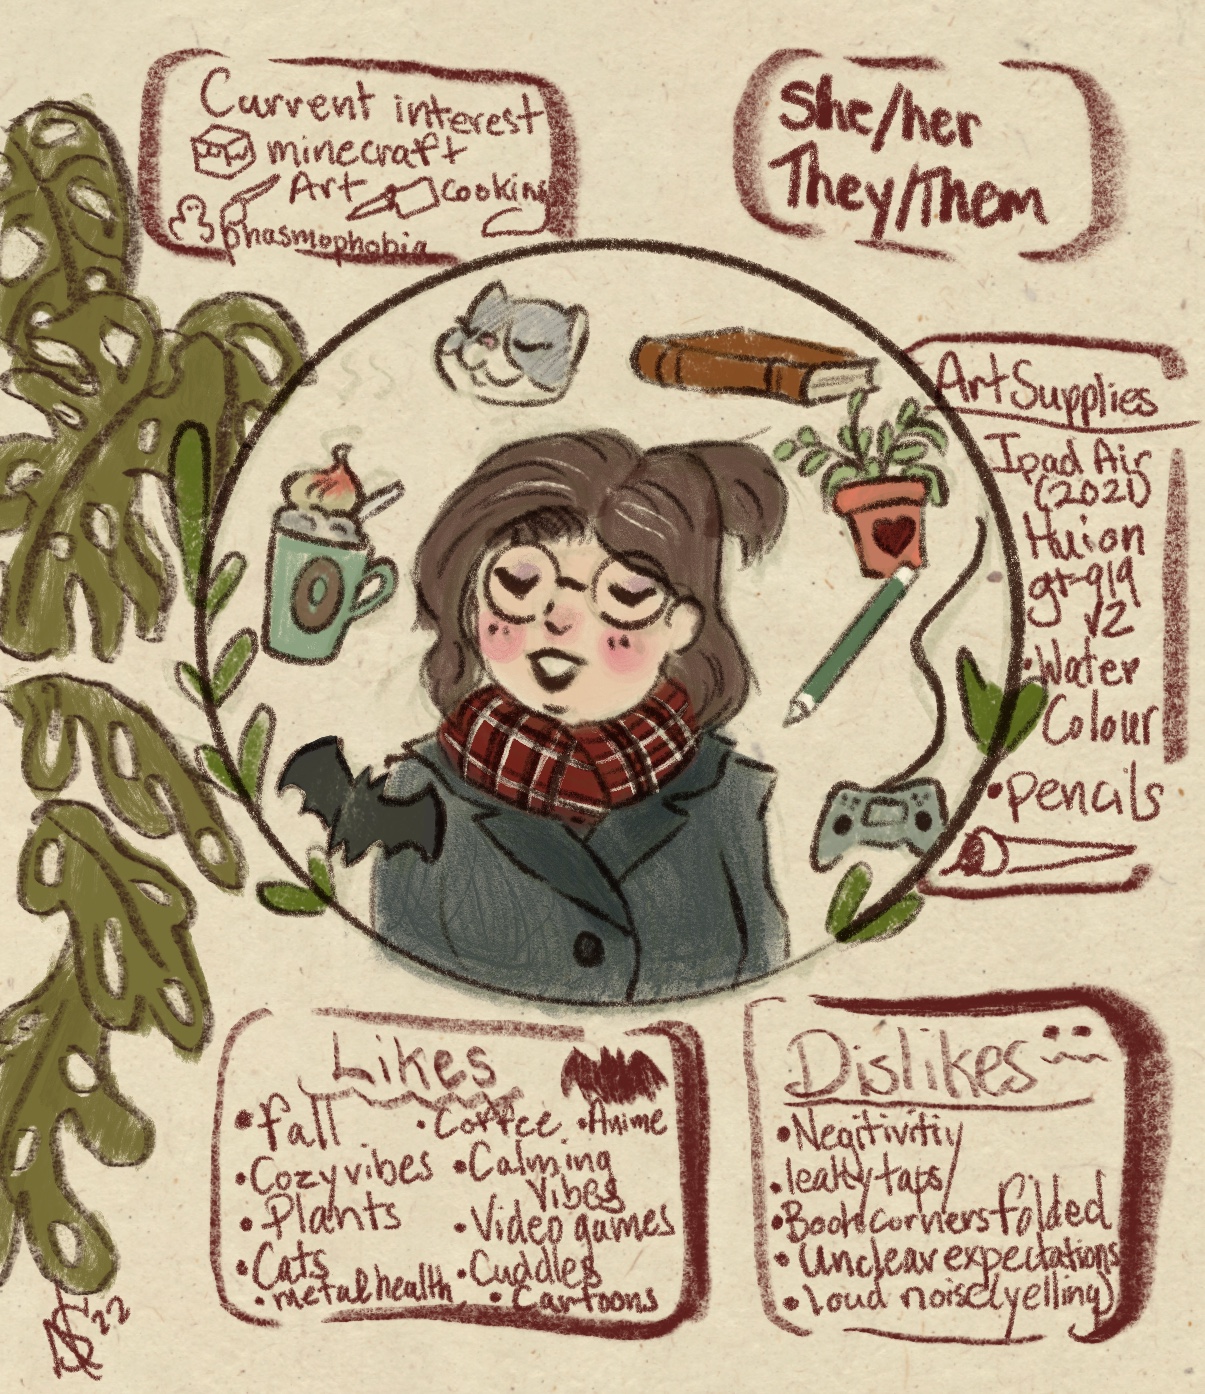 Current interest
minecraft
Art cooking
phasmophobia
She/her
They/Them
Art Supplies
Ipad Air
(2021)
Huion
gt-919
v2
•Water
Colour
•pencils
Likes
•fall •Coffee •Anime
•Cozy vibes •Calming
vibes
•Plants •Video games
•Cats •Cuddles
•metal health •Cartoons
Dislikes
•Negitivitiy
•leaky taps
•Book corners folded
•Unclear expectations
•loud noise(yelling)
22